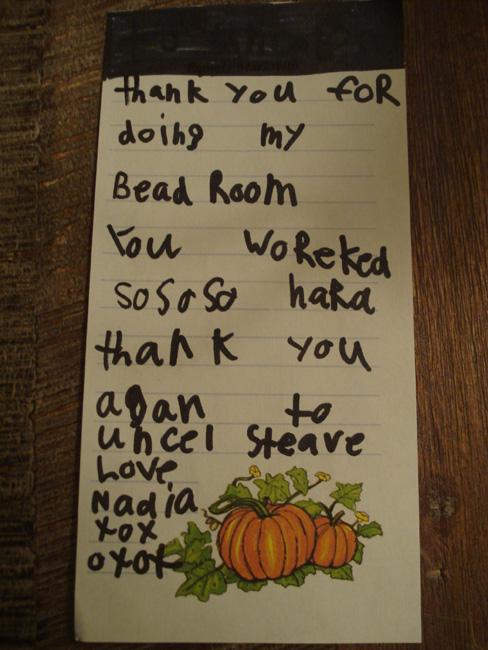 thank you foR
doing my
Bead Room
You WoReked
so so so hard
thank you
agan to
uncel Steave
Love
Nadia
xox
oxox